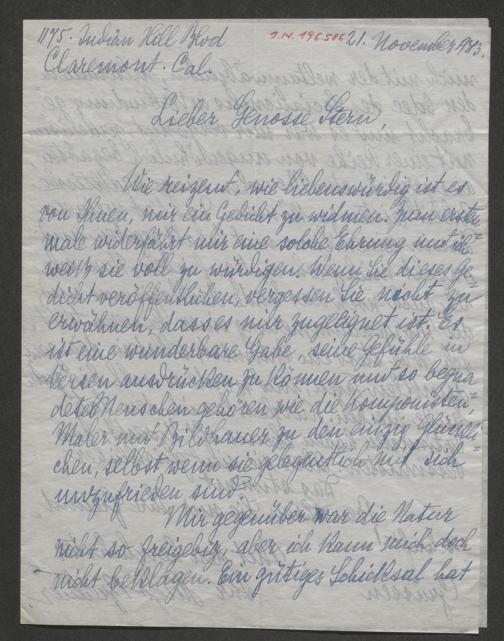 1175. Indian Hill Blvd
J.N. 196.586
21. November 1943.
Claremont. Cal.
Lieber Genosse Stern,
Wie reizend, wie liebenswürdig ist es
von Ihnen, mir ein Gedicht zu widmen. Zum ersten=
male widerfährt mir eine solche Ehrung und ich
weiss sie voll zu würdigen. Wenn Sie dieses Ge=
dicht veröffentlichen, vergessen Sie nicht zu
erwähnen, dass es mir zugeeignet ist. Es
ist eine wunderbare Gabe, seine Gefühle in
Versen ausdrücken zu können und so begna
dete Menschen gehören wie die Komponisten,
Maler und Bildhauer zu den einzig glückli=
chen, selbst wenn sie gelegentlich mit sich
unzufrieden sind.
Mir gegenüber war die Natur
nicht so freigebig, aber ich kann mich doch
nicht beklagen. Ein gütiges Schicksal hat